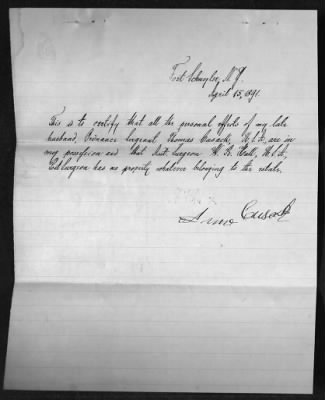 Fort Schuyler, N.Y.
April 15, 1891.
This is to certify that all the personal effects of my late
husband, Ordnance Sergeant Thomas Cusack, U.S.A. are in
my possession and that Asst. Surgeon W. R. Hall, U.S.A.
Post Surgeon has no property whatever belonging to the estate.
Cusack